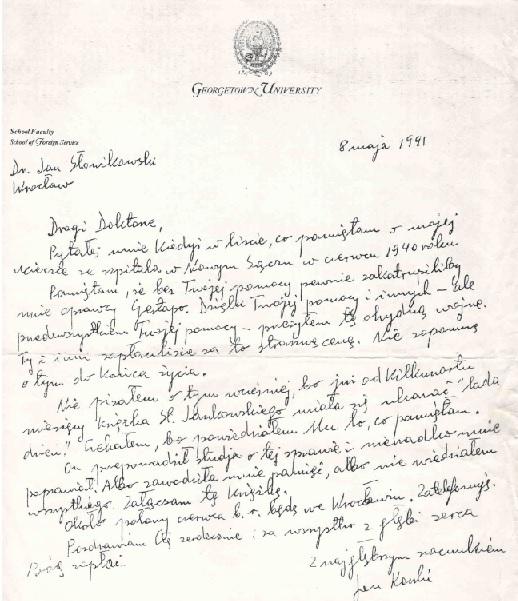 GEORGETOWN UNIVERSITY
School Faculty
School of Foreign Service
8 maja 1991
Dr. Jan Słowikowski
Wrocław
Drogi Doktorze,
Pytałeś mnie kiedyś w liście, co pamiętam o mojej
ucieczce ze szpitala w Nowym Sączu w czerwcu 1940 roku.
Pamiętam, że bez Twojej pomocy pewnie zakatrupiliby
mnie oprawcy Gestapo. Dzięki Twojej pomocy i innych – ale
przedewszystkiem Twojej pomocy – przeżyłem tę ohydną wojnę.
Ty i inni zapłaciliście za to straszną cenę. Nie zapomnę
o tym do końca życia.
Nie pisałem o tym wcześniej, bo już od kilkunastu
miesięcy książka St. Jankowskiego miała się ukazać "lada
dzień." Czekałem, bo powiedziałem Mu to, co pamiętam.
On przeprowadził studja o tej sprawie i nienadko mnie
poprawiał. Albo zawodziła mnie pamięć, albo nie wiedziałem
wszystkiego. Załączam tę książkę.
Około połowy czerwca b.r. będę we Wrocławiu. Zatelefonuję.
Pozdrawiam Cię serdecznie i za wszystko z głębi serca
Bóg zapłać.
Z najgłębszym szacunkiem
Jan Karski